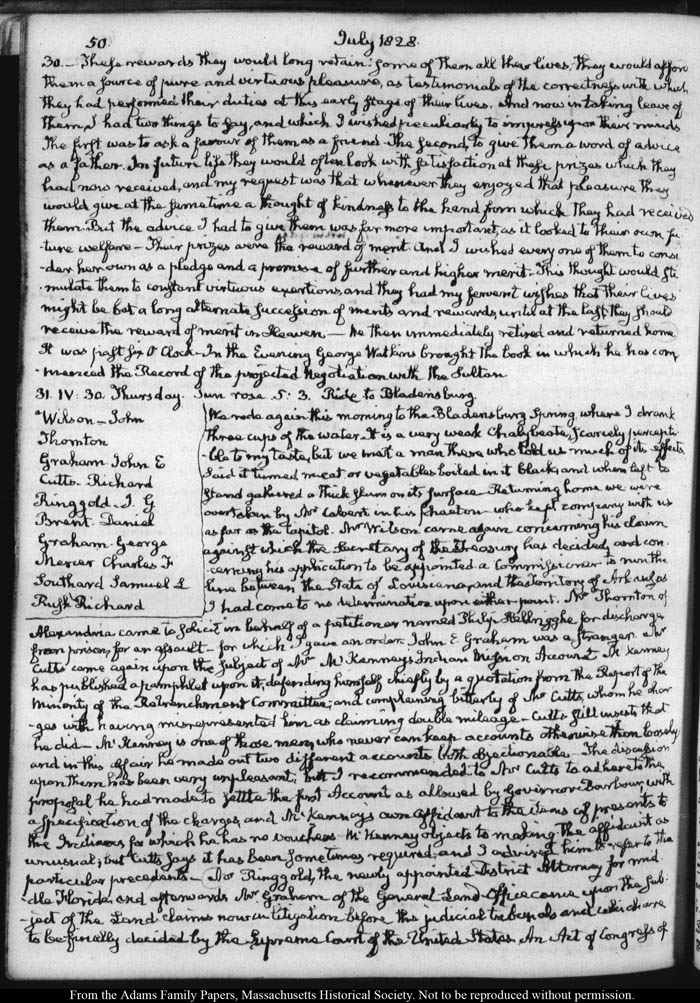 50.
July 1828.
30. – These rewards they would long retain: some of them all their lives; they would afford
them a source of pure and virtuous pleasure, as testimonials of the correctness with which
they had performed their duties at this early stage of their lives. And now in taking leave of
them, I had two things to say, and which I wished peculiarly to impress upon their minds
The first was to ask a favour of them as a friend. The second, to give them a word of advice
as a father. In future life they would often look with satisfaction at those prizes which they
had now received, and my request was that whenever they enjoyed that pleasure they
would give at the same time a thought of kindness to the hand from which they had received
them. But the advice I had to give them was far more important, as it looked to their own fu-
ture welfare – Their prizes were the reward of merit and I wished every one of them to consi
-der her own as a pledge and a promise of further and higher merit. This thought would sti
-mulate them to constant virtuous exertions, and they had my fervent wishes that their lives
might be but a long alternate succession of merits and rewards, until at the last they should
receive the reward of merit in Heaven. – We then immediately retired and returned home
It was past six O'Clock – In the Evening George Watkins brought the book in which he has com
-menced the Record of the projected Negotiation with the Sultan
31. IV: 30. Thursday. Sun rose 5: 3. Ride to Bladensburg.
Wilson – John
Thornton
Graham John E
Cutts. Richard
Ringgold. J. G
Brent. Daniel
Graham. George
Mercer Charles F
Southard Samuel L
Rush Richard
We rode again this morning to the Bladensburg Spring, where I drank
three cups of the water. It is a very weak Chalybeate, scarcely percepti-
-ble to my taste, but we met a man there who told us much of its effects,
said it turned meat or vegetables boiled in it black, and when left to
stand gathered a thick slum on its surface. Returning home we were
overtaken by Mr Calvert in his Phaeton – who kept company with us
as far as the Capitol. Mr Wilson came again concerning his claim
against which the Secretary of the Treasury has decided, and con-
cerning his application to be appointed a Commissioner to run the
line between the State of Louisiana, and the territory of Arkansas
I had come to no determination upon either point. Mr Thornton of
Alexandria came to solicit in behalf of a petitioner named Philip for discharge
from prison, for an assault – for which I gave an order. John E. Graham was a stranger. Mr
Cutts came again upon the subject of Mr McKenney's Indian Mission Account. McKenney
has published a pamphlet upon it, defending himself chiefly by a quotation from the Report of the
Minority of the Retrenchment Committee; and complaining bitterly of Mr Cutts, whom he char
-ges with having misrepresented him as claiming double mileage – Cutts still insists that
he did – McKenney is one of those men, who never can keep accounts otherwise than loosely;
and in this affair he made out two different accounts, both objectionable – The discussion
upon them has been very unpleasant; but I recommended to Mr Cutts to adhere to the
proposal he had made to settle the first Account as allowed by Governor Barbour, with
a specification of the charges, and McKenney's own affidavit to the items of presents to
the Indians for which he has no vouchers. McKenney objects to making the affidavit as
unusual; but Cutts says it has been sometimes required, and I advised him to refer to the
particular precedents – Mr Ringgold, the newly appointed District Attorney for mid
-dle Florida and afterwards Mr Graham of the General Land Office came upon the sub-
-ject of the Land claims now in litigation before the judicial tribunals and which are
to be finally decided by the Supreme Court of the United States. An Act of Congress of
From the Adams Family Papers, Massachusetts Historical Society. Not to be reproduced without permission.